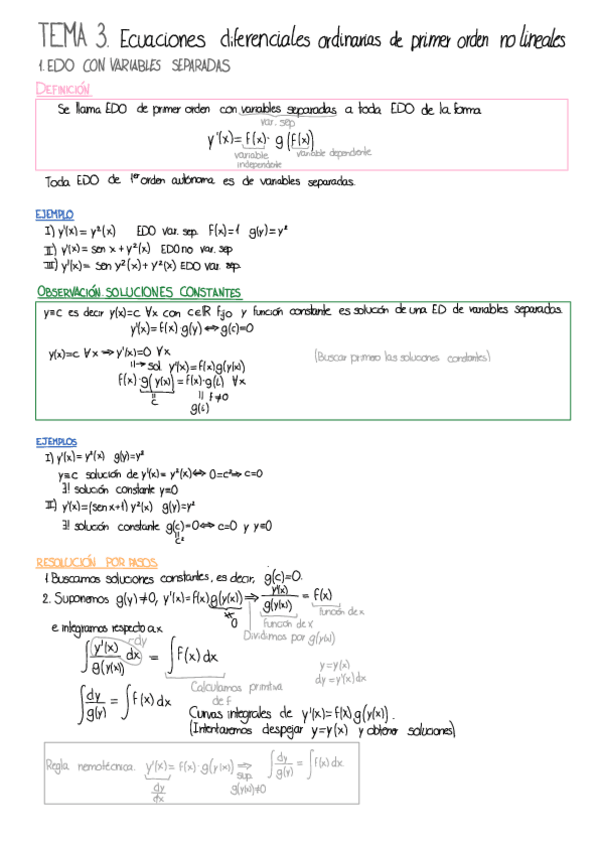 TEMA 3. Ecuaciones diferenciales ordinarias de primer orden no lineales
1. EDO CON VARIABLES SEPARADAS
DEFINICIÓN
Se llama EDO de primer orden con variables separadas a toda EDO de la forma
var. sep
y'(x)= f(x)· g(f(x))
variable independiente
variable dependiente
Toda EDO de 1er orden autónoma es de variables separadas.
EJEMPLO
I) y'(x) = y²(x) EDO var. sep. f(x)=1 g(y)=y²
II) y'(x) = sen x + y²(x) EDO no var. sep
III) y'(x) = sen y²(x) + y²(x) EDO var. sep.
OBSERVACIÓN. SOLUCIONES CONSTANTES
y≡c es decir y(x)=c ∀x con c∈ℝ fijo y función constante es solución de una ED de variables separadas.
y'(x) = f(x)·g(y) ⟺ g(c)=0
y(x)=c ∀x ⟹ y'(x)=0 ∀x
(Buscar primero las soluciones constantes)
sol. y'(x) = f(x)g(y(x))
f(x)·g(y(x)) = f(x)·g(c) ∀x
c
|| f≠0
g(c)
EJEMPLOS
I) y'(x) = y²(x) g(y)=y²
y≡c solución de y'(x) = y²(x) ⟺ 0=c² ⟹ c=0
∃! solución constante y≡0
II) y'(x) = (sen x+1) y²(x) g(y)=y²
∃! solución constante g(c)=0 ⟺ c=0 y y≡0
||
c²
RESOLUCIÓN POR PASOS
1. Buscamos soluciones constantes, es decir, g(c)=0.
2. Suponemos g(y)≠0, y'(x)=f(x)g(y(x)) ⟹ y'(x)/g(y(x)) = f(x)
función de x
0
función de x
Dividimos por g(y(x))
e integramos respecto a x
∫ y'(x)/g(y(x)) dx = ∫ f(x) dx
dy
y=y(x)
dy = y'(x) dx
Calculamos primitiva de f
∫ dy/g(y) = ∫ f(x) dx
Curvas integrales de y'(x) = f(x) g(y(x)).
(Intentaremos despejar y=y(x) y obtener soluciones)
Regla nemotécnica. y'(x) = f(x)·g(y(x)) ⟹ ∫ dy/g(y) = ∫ f(x) dx
sup. g(y(x))≠0
dy/dx